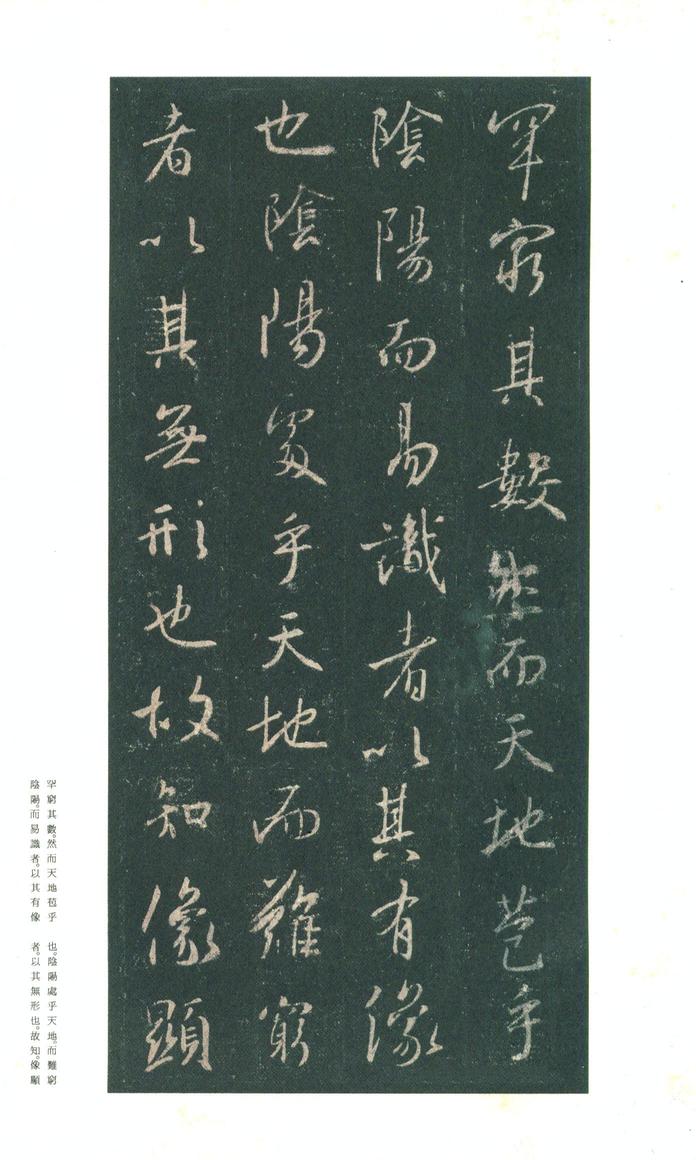 罕窮其數然而天地苞乎
陰陽而易識者以其有像
也陰陽處乎天地而難窮
者以其無形也故知像顯
罕窮其數。然而天地苞乎
陰陽。而易識者。以其有像
也。陰陽處乎天地。而難窮
者。以其無形也。故知。像顯